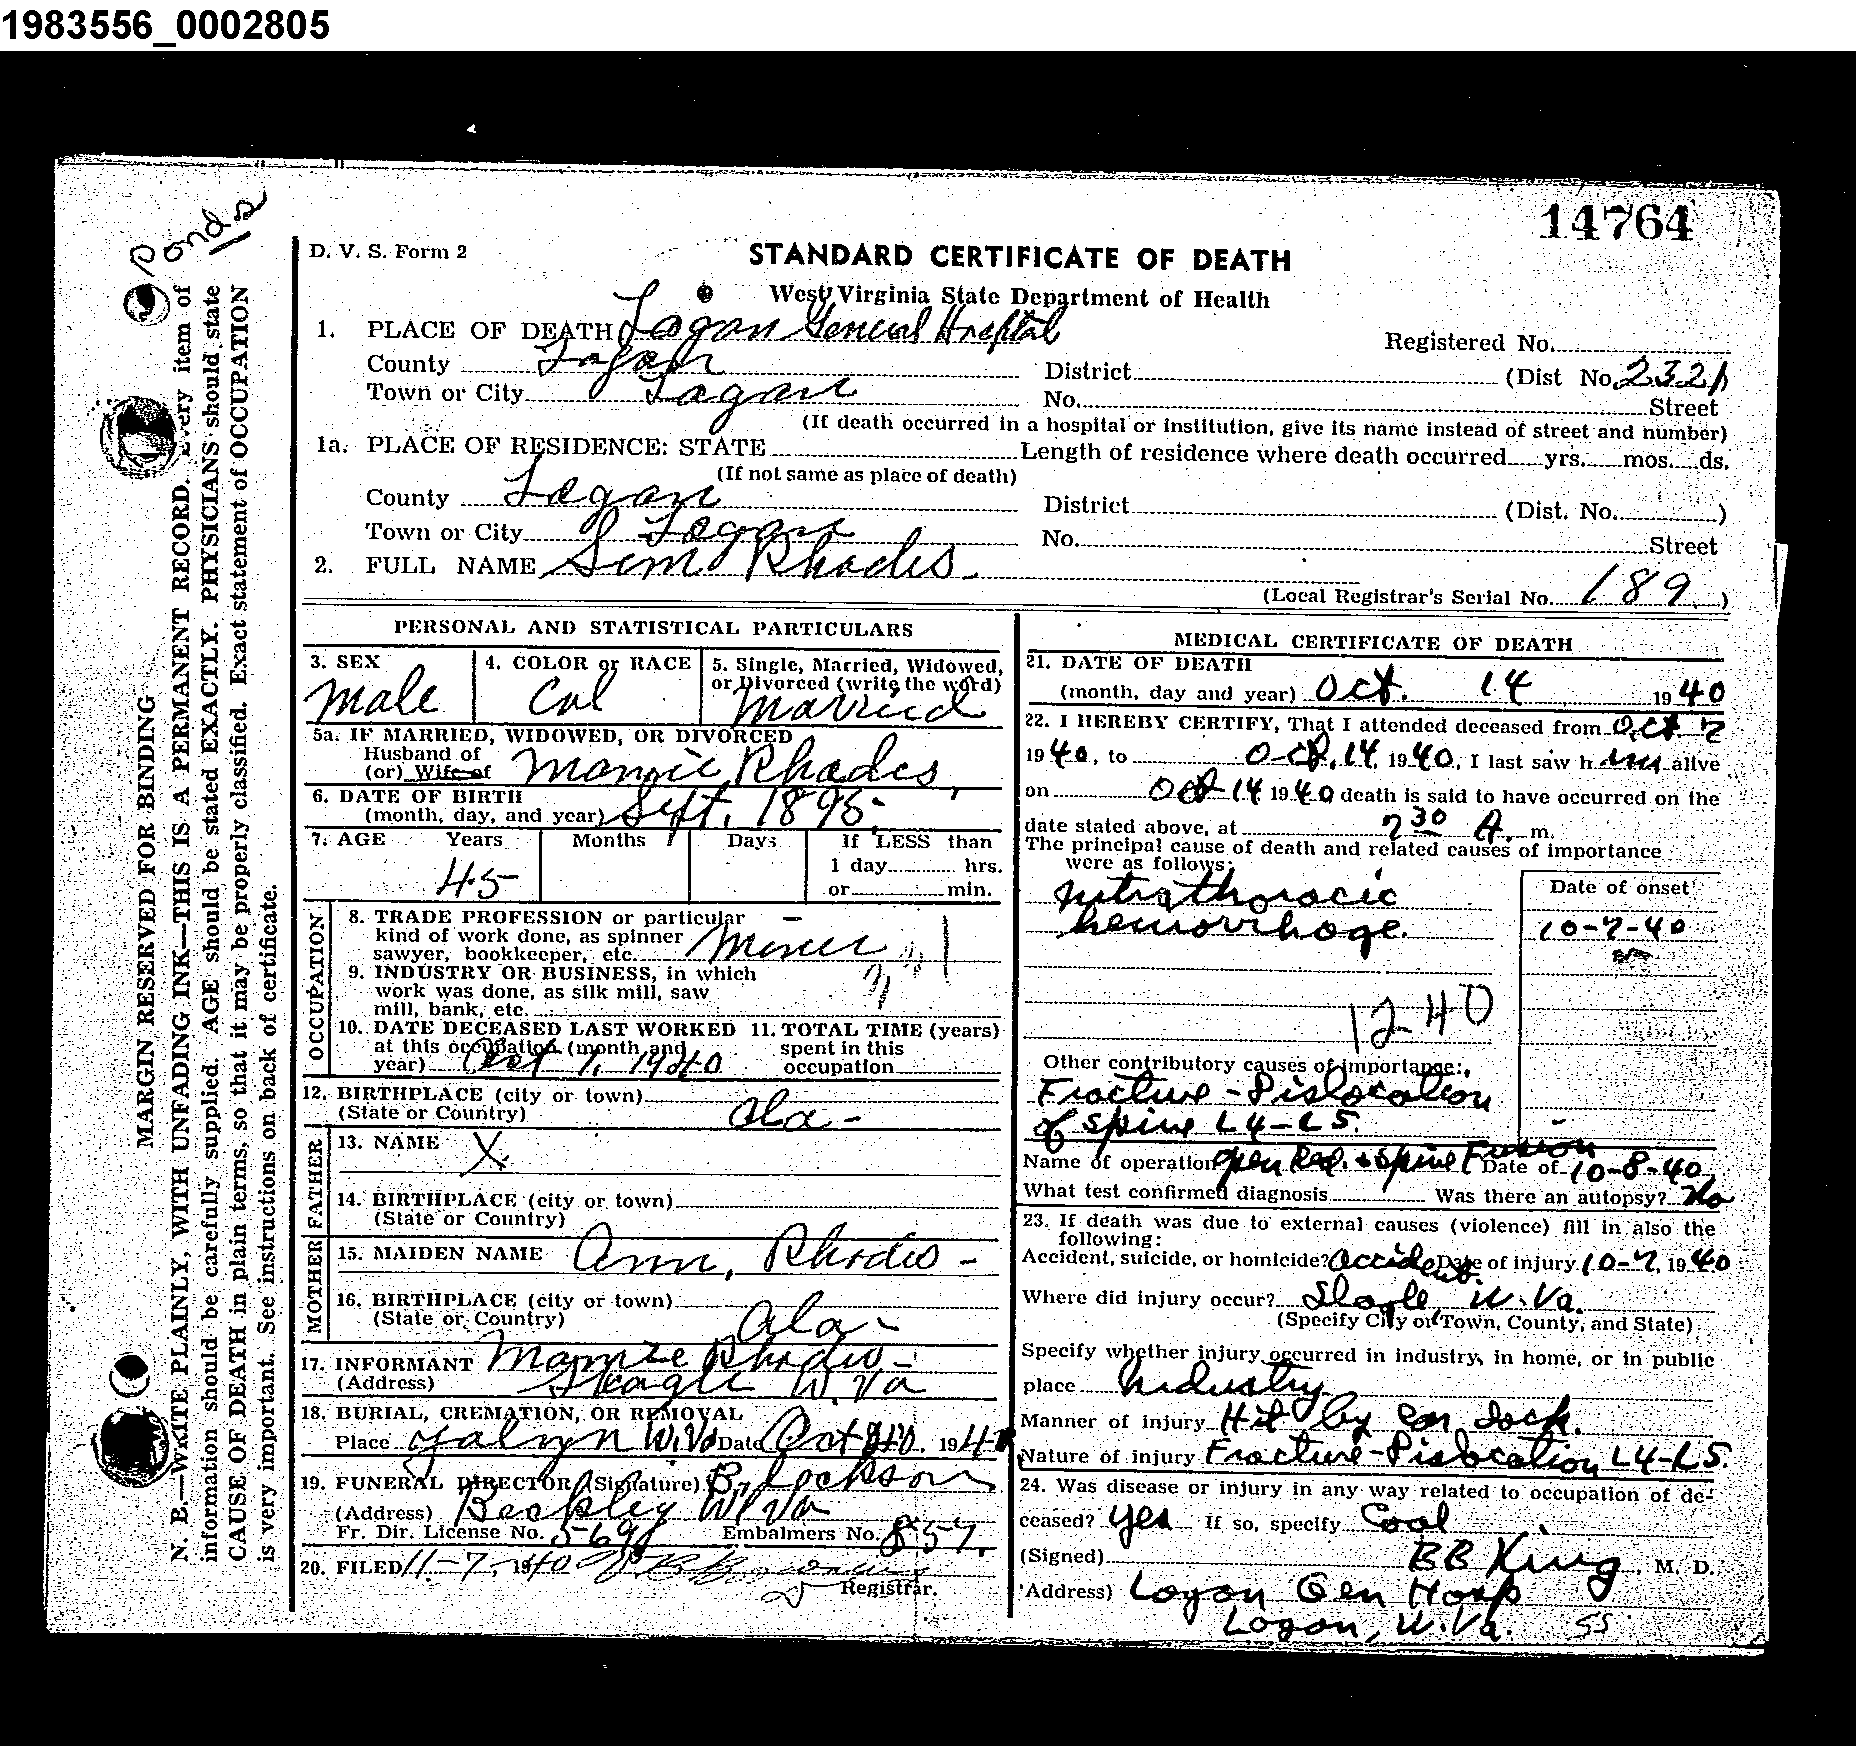 1983556_0002805
Ponds
14764
D. V. S. Form 2
STANDARD CERTIFICATE OF DEATH
West Virginia State Department of Health
1. PLACE OF DEATH Logan General Hospital
Registered No.
County Logan District (Dist No. 2321)
Town or City Logan No. Street
(If death occurred in a hospital or institution, give its name instead of street and number)
1a. PLACE OF RESIDENCE: STATE Length of residence where death occurred yrs. mos. ds.
(If not same as place of death)
County Logan District (Dist. No. )
Town or City Logan No. Street
2. FULL NAME Sim Rhodes
(Local Registrar's Serial No. 189 )
MARGIN RESERVED FOR BINDING
N. B.—WRITE PLAINLY, WITH UNFADING INK—THIS IS A PERMANENT RECORD. Every item of
information should be carefully supplied. AGE should be stated EXACTLY. PHYSICIANS should state
CAUSE OF DEATH in plain terms, so that it may be properly classified. Exact statement of OCCUPATION
is very important. See instructions on back of certificate.
PERSONAL AND STATISTICAL PARTICULARS
3. SEX
male
4. COLOR or RACE
Col
5. Single, Married, Widowed,
or Divorced (write the word)
Married
5a. IF MARRIED, WIDOWED, OR DIVORCED
Husband of
(or) Wife of Mamie Rhodes
6. DATE OF BIRTH
(month, day, and year) Sept. 1895
7. AGE Years Months Days If LESS than
1 day hrs.
45 or min.
OCCUPATION
8. TRADE PROFESSION or particular
kind of work done, as spinner
sawyer, bookkeeper, etc. Miner
9. INDUSTRY OR BUSINESS, in which
work was done, as silk mill, saw
mill, bank, etc.
10. DATE DECEASED LAST WORKED
at this occupation (month and
year) Oct 7, 1940
11. TOTAL TIME (years)
spent in this
occupation
12. BIRTHPLACE (city or town)
(State or Country) Ala -
FATHER
13. NAME X
14. BIRTHPLACE (city or town)
(State or Country)
MOTHER
15. MAIDEN NAME Ann, Rhodes -
16. BIRTHPLACE (city or town)
(State or Country) Ala -
17. INFORMANT Mamie Rhodes -
(Address) W. Va
18. BURIAL, CREMATION, OR REMOVAL
Place W. Va Date Oct 194
19. FUNERAL DIRECTOR (Signature) B. Jackson
(Address) Beckley W. Va
Fr. Dir. License No. 569 Embalmers No. 857.
20. FILED 11-7, 1940
Registrar.
MEDICAL CERTIFICATE OF DEATH
21. DATE OF DEATH
(month, day and year) Oct. 14 1940
22. I HEREBY CERTIFY, That I attended deceased from Oct 7
1940, to Oct, 14, 1940, I last saw him alive
on Oct 14 1940 death is said to have occurred on the
date stated above, at 730 A. m.
The principal cause of death and related causes of importance
were as follows:
Date of onset
Intrathoracic
hemorrhage.
10-7-40
1240
Other contributory causes of importance:
Fracture - Dislocation
of spine L4-L5.
Name of operation open Red. & spine Fusion Date of 10-8-40
What test confirmed diagnosis Was there an autopsy? No
23. If death was due to external causes (violence) fill in also the
following:
Accident, suicide, or homicide? Accident. Date of injury 10-7, 1940
Where did injury occur? Slagle, W. Va.
(Specify City or Town, County, and State)
Specify whether injury occurred in industry, in home, or in public
place Industry
Manner of injury Hit by
Nature of injury Fracture-Dislocation L4-L5.
24. Was disease or injury in any way related to occupation of de-
ceased? Yes If so, specify Coal
(Signed) BB King, M. D.
(Address) Logan Gen Hosp
Logan, W. Va. 55